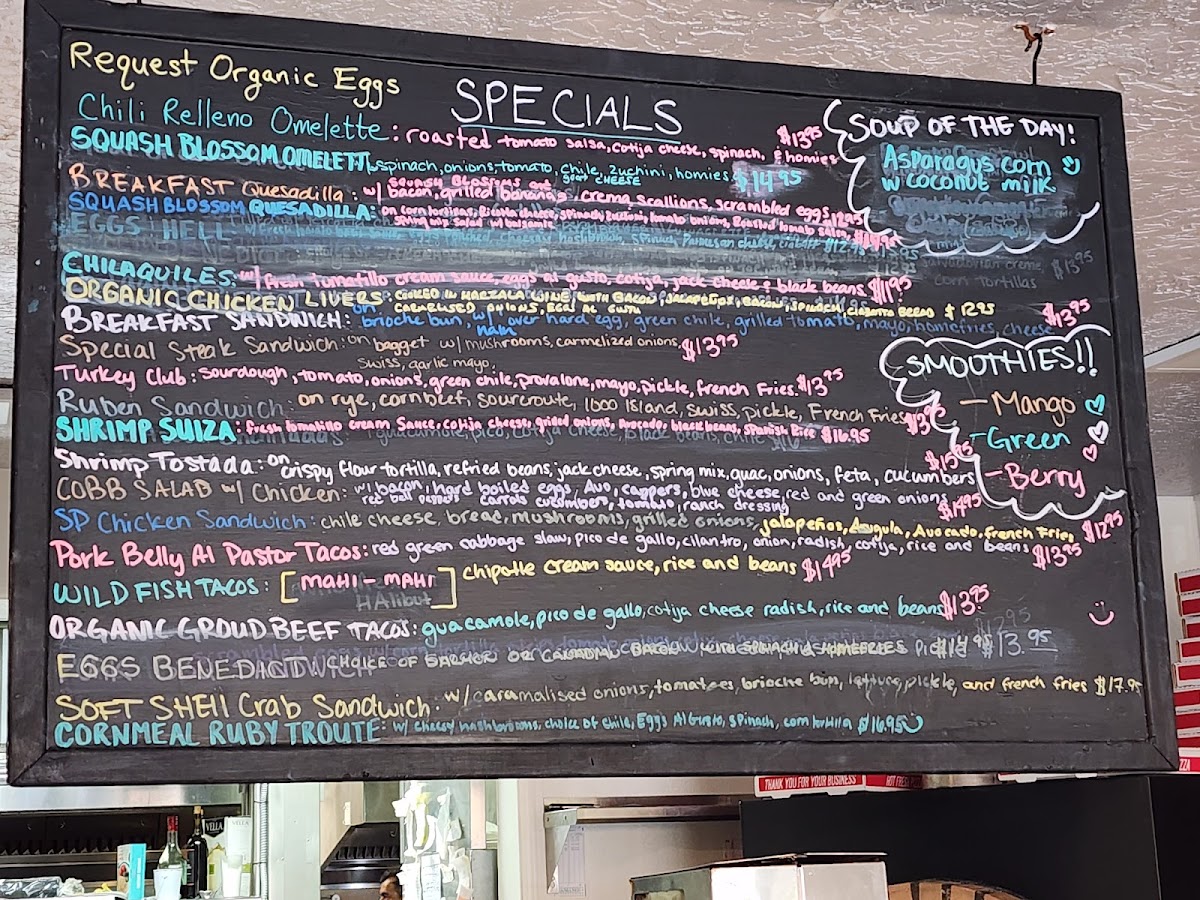 Request Organic Eggs
SPECIALS
Chili Relleno Omelette: roasted tomato salsa, cotija cheese, spinach, & homies $13.95
SQUASH BLOSSOM OMELETT spinach, onions, tomato, chile, zuchini, homies $14.95
goat CHEESE
squash Blossoms and
BREAKFAST Quesadilla: w/ bacon, grilled bananas, crema scallions, scrambled eggs $12.95
SQUASH BLOSSOM QUESADILLA: on corn tortillas, Ricotta cheese, spinach, zucchini, tomato, onions, Roasted tomato salsa, $14.95
spring mix salad w/ balsamic
EGGS N HELL
CHILAQUILES: w/ fresh tomatillo cream sauce, eggs al gusto, cotija, jack cheese & black beans $11.95
ORGANIC CHICKEN LIVERS COOKED IN MARSALA WINE WITH BACON, JALAPEÑOS, BACON, SPINACH, CIABATTA BREAD $12.95
CARMELISED ONIONS, EGGS AL GUSTO
BREAKFAST SANDWICH: on brioche bun, w/ over hard egg, green chile, grilled tomato, mayo, homefries, cheese $13.95
ham
Special Steak Sandwich: on bagget w/ mushrooms, carmelized onions, $13.95
swiss, garlic mayo,
Turkey Club: sourdough, tomato, onions, green chile, provalone, mayo, pickle, french fries $13.95
Ruben Sandwich: on rye, corn beef, sourcroute, 1000 Island, swiss, pickle, French Fries $13.95
SHRIMP SUIZA: fresh tomatillo cream Sauce, cotija cheese, griled onions, avocado, black beans, Spanish Rice $16.95
Shrimp Tostada: on crispy flour tortilla, refried beans, jack cheese, spring mix, guac, onions, feta, cucumbers
COBB SALAD w/ Chicken: w/ bacon, hard boiled eggs, Avo, cappers, blue cheese, red and green onions $14.95
red bell peppers carrots cucumbers, tomato, ranch dressing
SP Chicken Sandwich: chile cheese, bread, mushrooms, grilled onions, jalapeños, Arugula, Avocado, french Fries $12.95
Pork Belly Al Pastor Tacos: red green cabbage slaw, pico de gallo, cilantro, onion, radish, cotija, rice and beans $13.95
WILD FISH TACOS: [MAHI-MAHI] chipotle cream sauce, rice and beans $14.95
HAlibut
ORGANIC GROUD BEEF TACOS: guacamole, pico de gallo, cotija cheese radish, rice and beans $13.95
EGGS BENEDICT W/ CHOICE OF SALMON OR CANADIAN BACON WITH SPINACH & HOMEFRIES $13.95
SOFT SHELL Crab Sandwich: w/ caramalised onions, tomatoes, brioche bun, lettuce, pickle, and french fries $17.95
CORNMEAL RUBY TROUTE: w/ cheesy hashbrowns, choice of chile, Eggs Al Gusto, spinach, corn tortilla $16.95
SOUP OF THE DAY!
Asparagus corn
w coconut milk
SMOOTHIES!!
- Mango
- Green
- Berry
THANK YOU FOR YOUR BUSINESS
VELLA